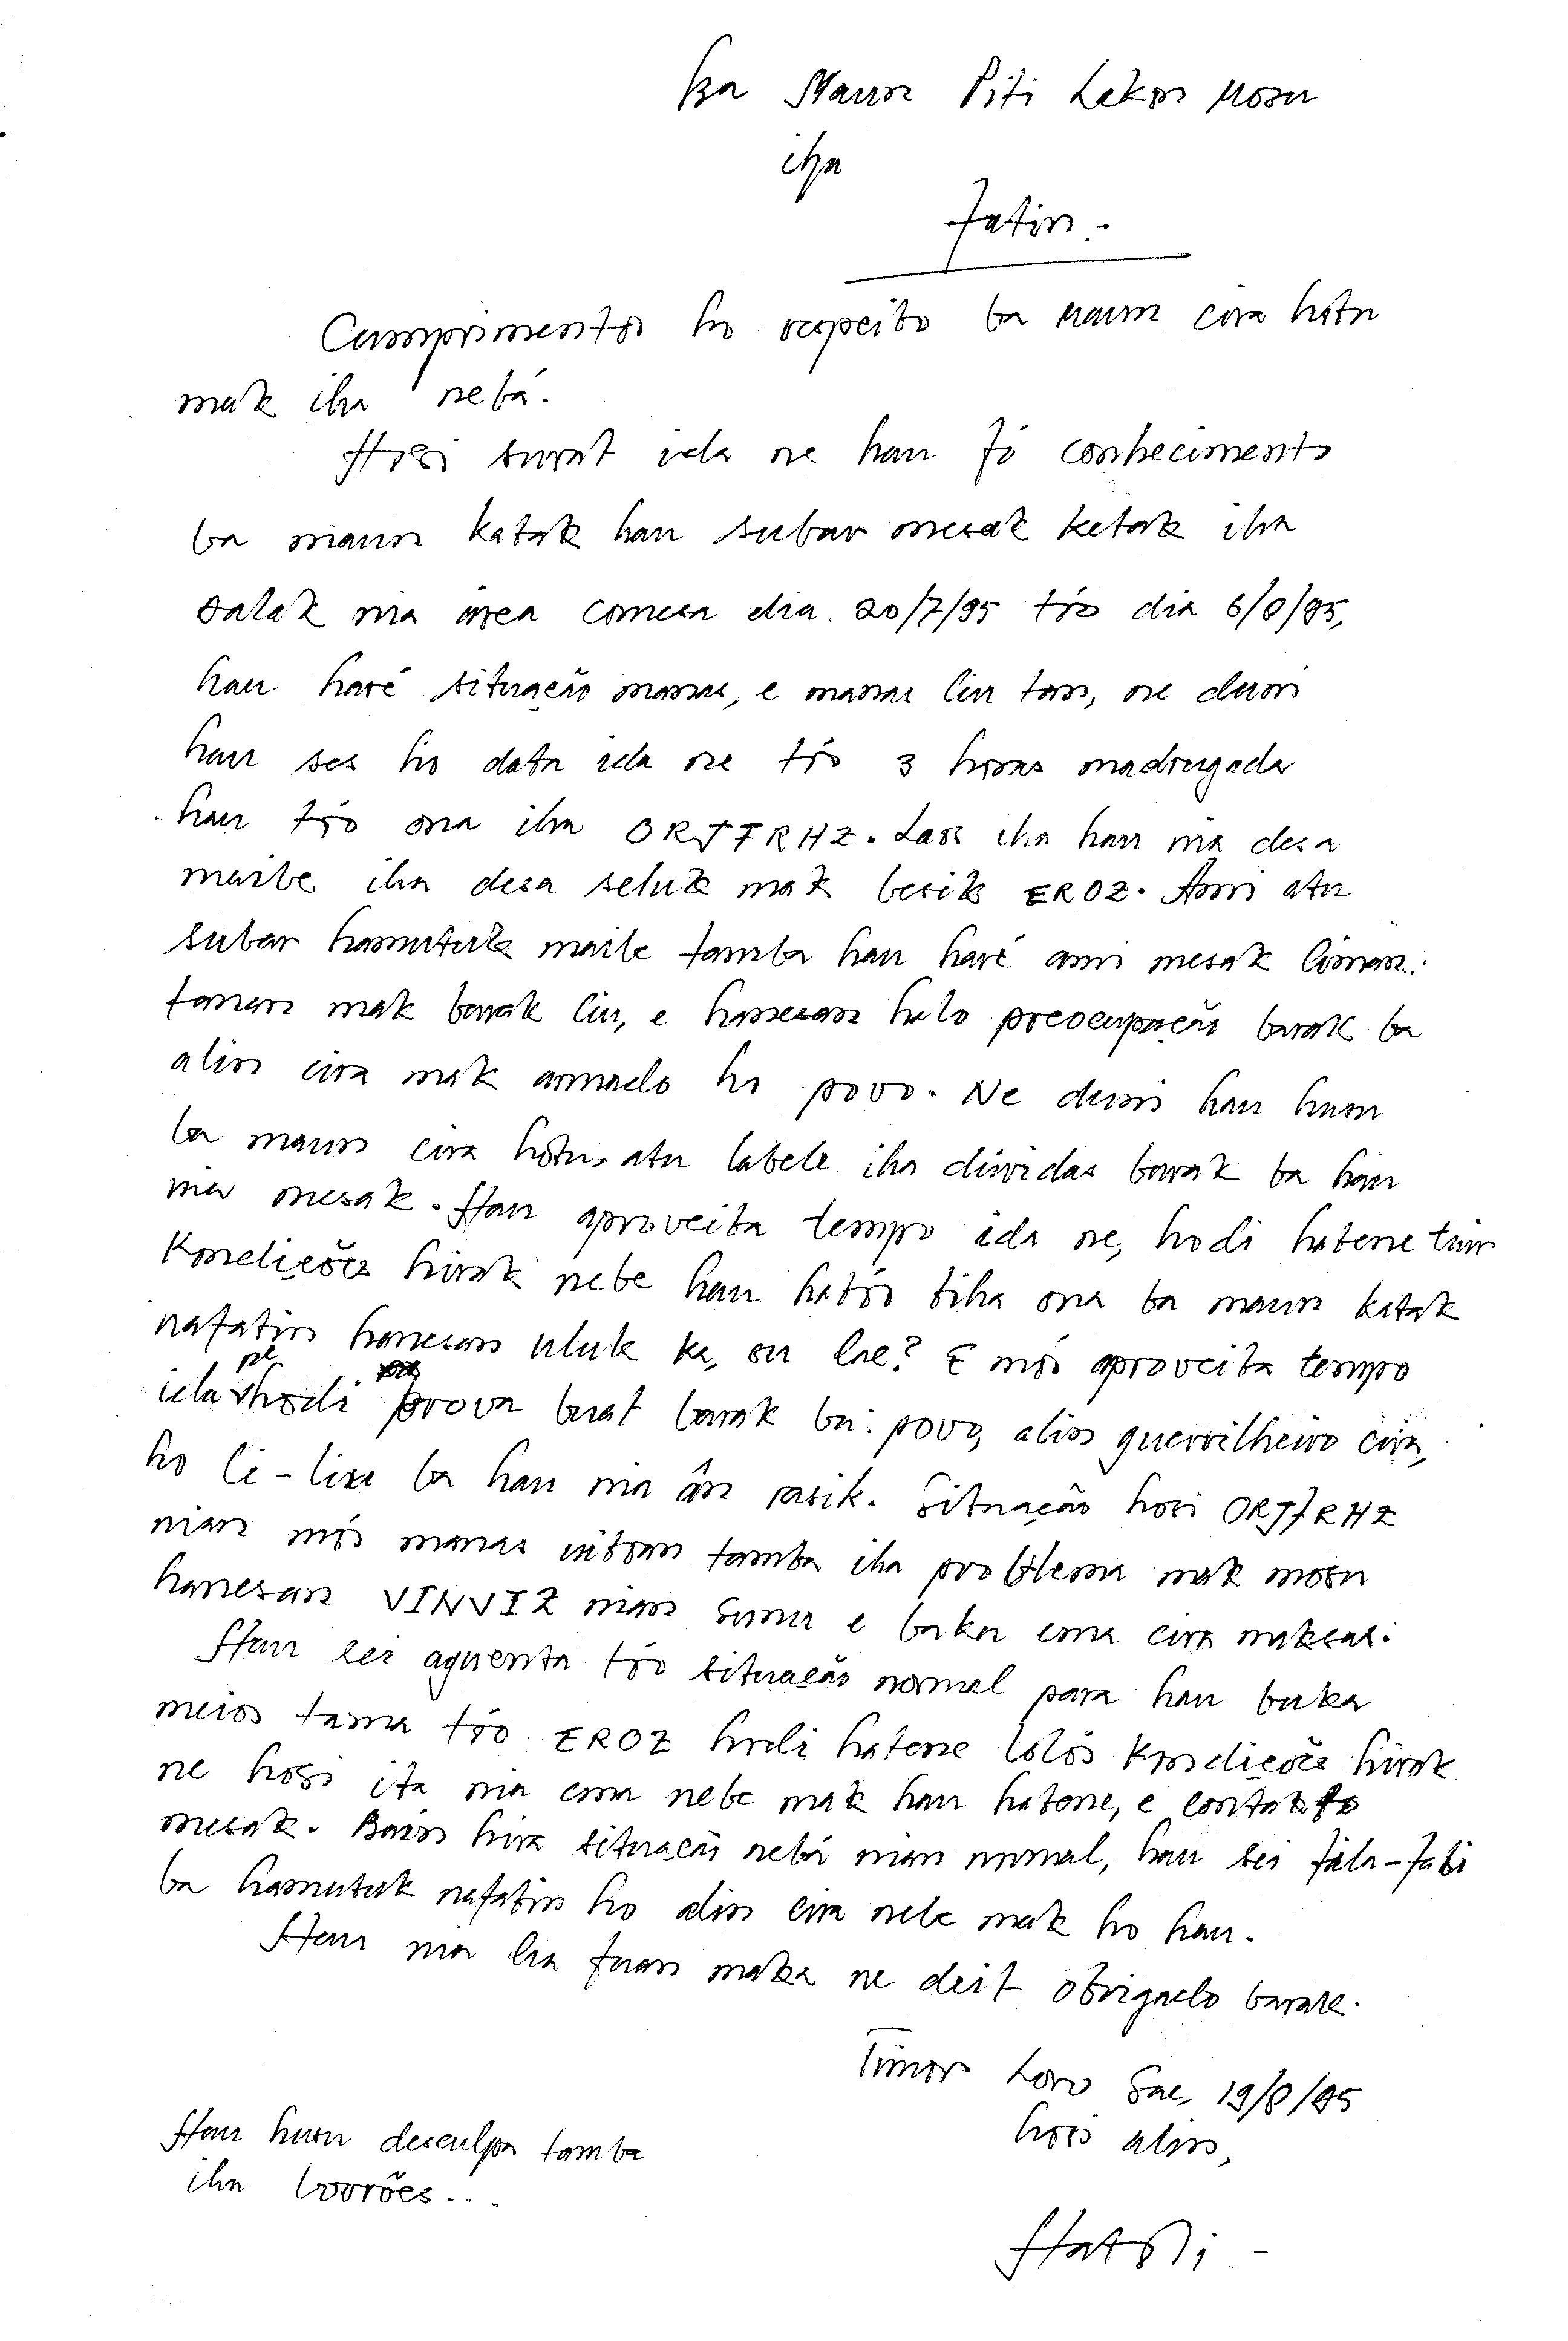 Ba Maun Piti Lakon Mosu
iha
Fatin.-
Cumprimentos ho respeito ba maun cira hotu
mak iha nebá.
Hosi surat ida ne hau fó conhecimento
ba maun katak hau subar mesak ketak iha
salak nia área comesa dia 20/7/95 tó dia 6/8/95,
hau haré situação manas, e manas liu tan, ne duni
hau ses ho data ida ne tó 3 horas madrugada
hau tó ona iha ORJFRHZ. Laos iha hau nia desa
maibe iha desa seluk mak besik EROZ. Ami atu
subar hamutuk maibe tamba hau haré ami mesak liman
fanan mak barak liu, e hanesan halo preocupação barak ba
alin cira mak armado ho povo. Ne duni hau husu
ba maun cira hotu, atu labele iha dúvidas barak ba hau
nia mesak. Hau aproveita tempo ida ne, hodi hatene tuir
kondições hirak nebe hau hatóo tiha ona ba maun katak
nafatin hanesan uluk ka, ou lae? E mós aproveita tempo
ida ne hodi prova buat barak ba: povo, alin guerrilheiro cira,
ho li-liu ba hau nia ân rasik. Situação hosi ORJFRHZ
nian mós manas uitoan tamba iha problema mak mosu
hanesan VINVIZ nian sunu e baku ema cira maksar.
Hau sei aguenta tó situação normal para hau buka
meios tama tó EROZ hodi hatene lolós kondições hirak
ne hosi ita nia ema nebe mak hau hatene, e contakto
mesak. Bain hira situação nebá nian normal, hau sei fila-fali
ba hamutuk nafatin ho alin cira nebe mak ho hau.
Hau nia lia fuan maka ne deit obrigado barak.
Timor Loro Sae, 19/8/95
hosi alin,
Hau husu desculpa tamba
iha borrões...